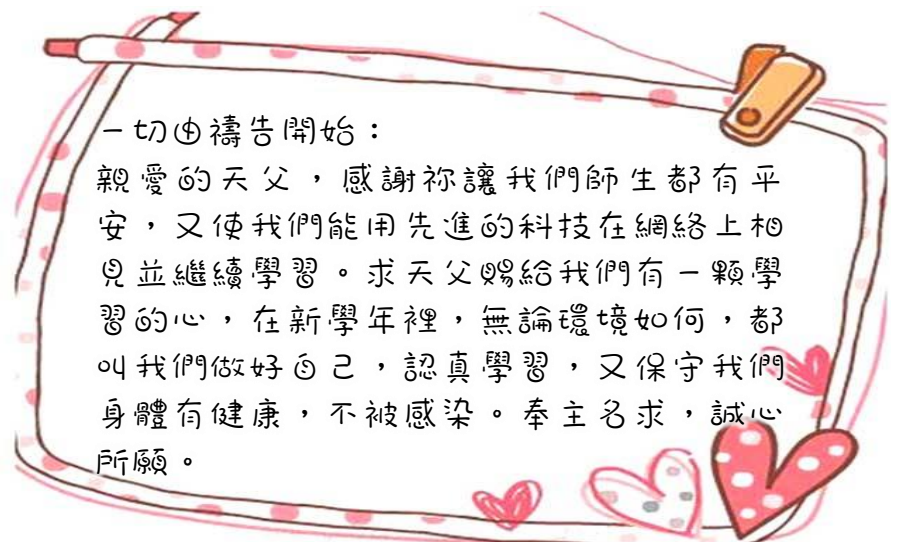 一切由禱告開始：
親愛的天父，感謝祢讓我們師生都有平
安，又使我們能用先進的科技在網絡上相
見並繼續學習。求天父賜給我們有一顆學
習的心，在新學年裡，無論環境如何，都
叫我們做好自己，認真學習，又保守我們
身體有健康，不被感染。奉主名求，誠心
所願。